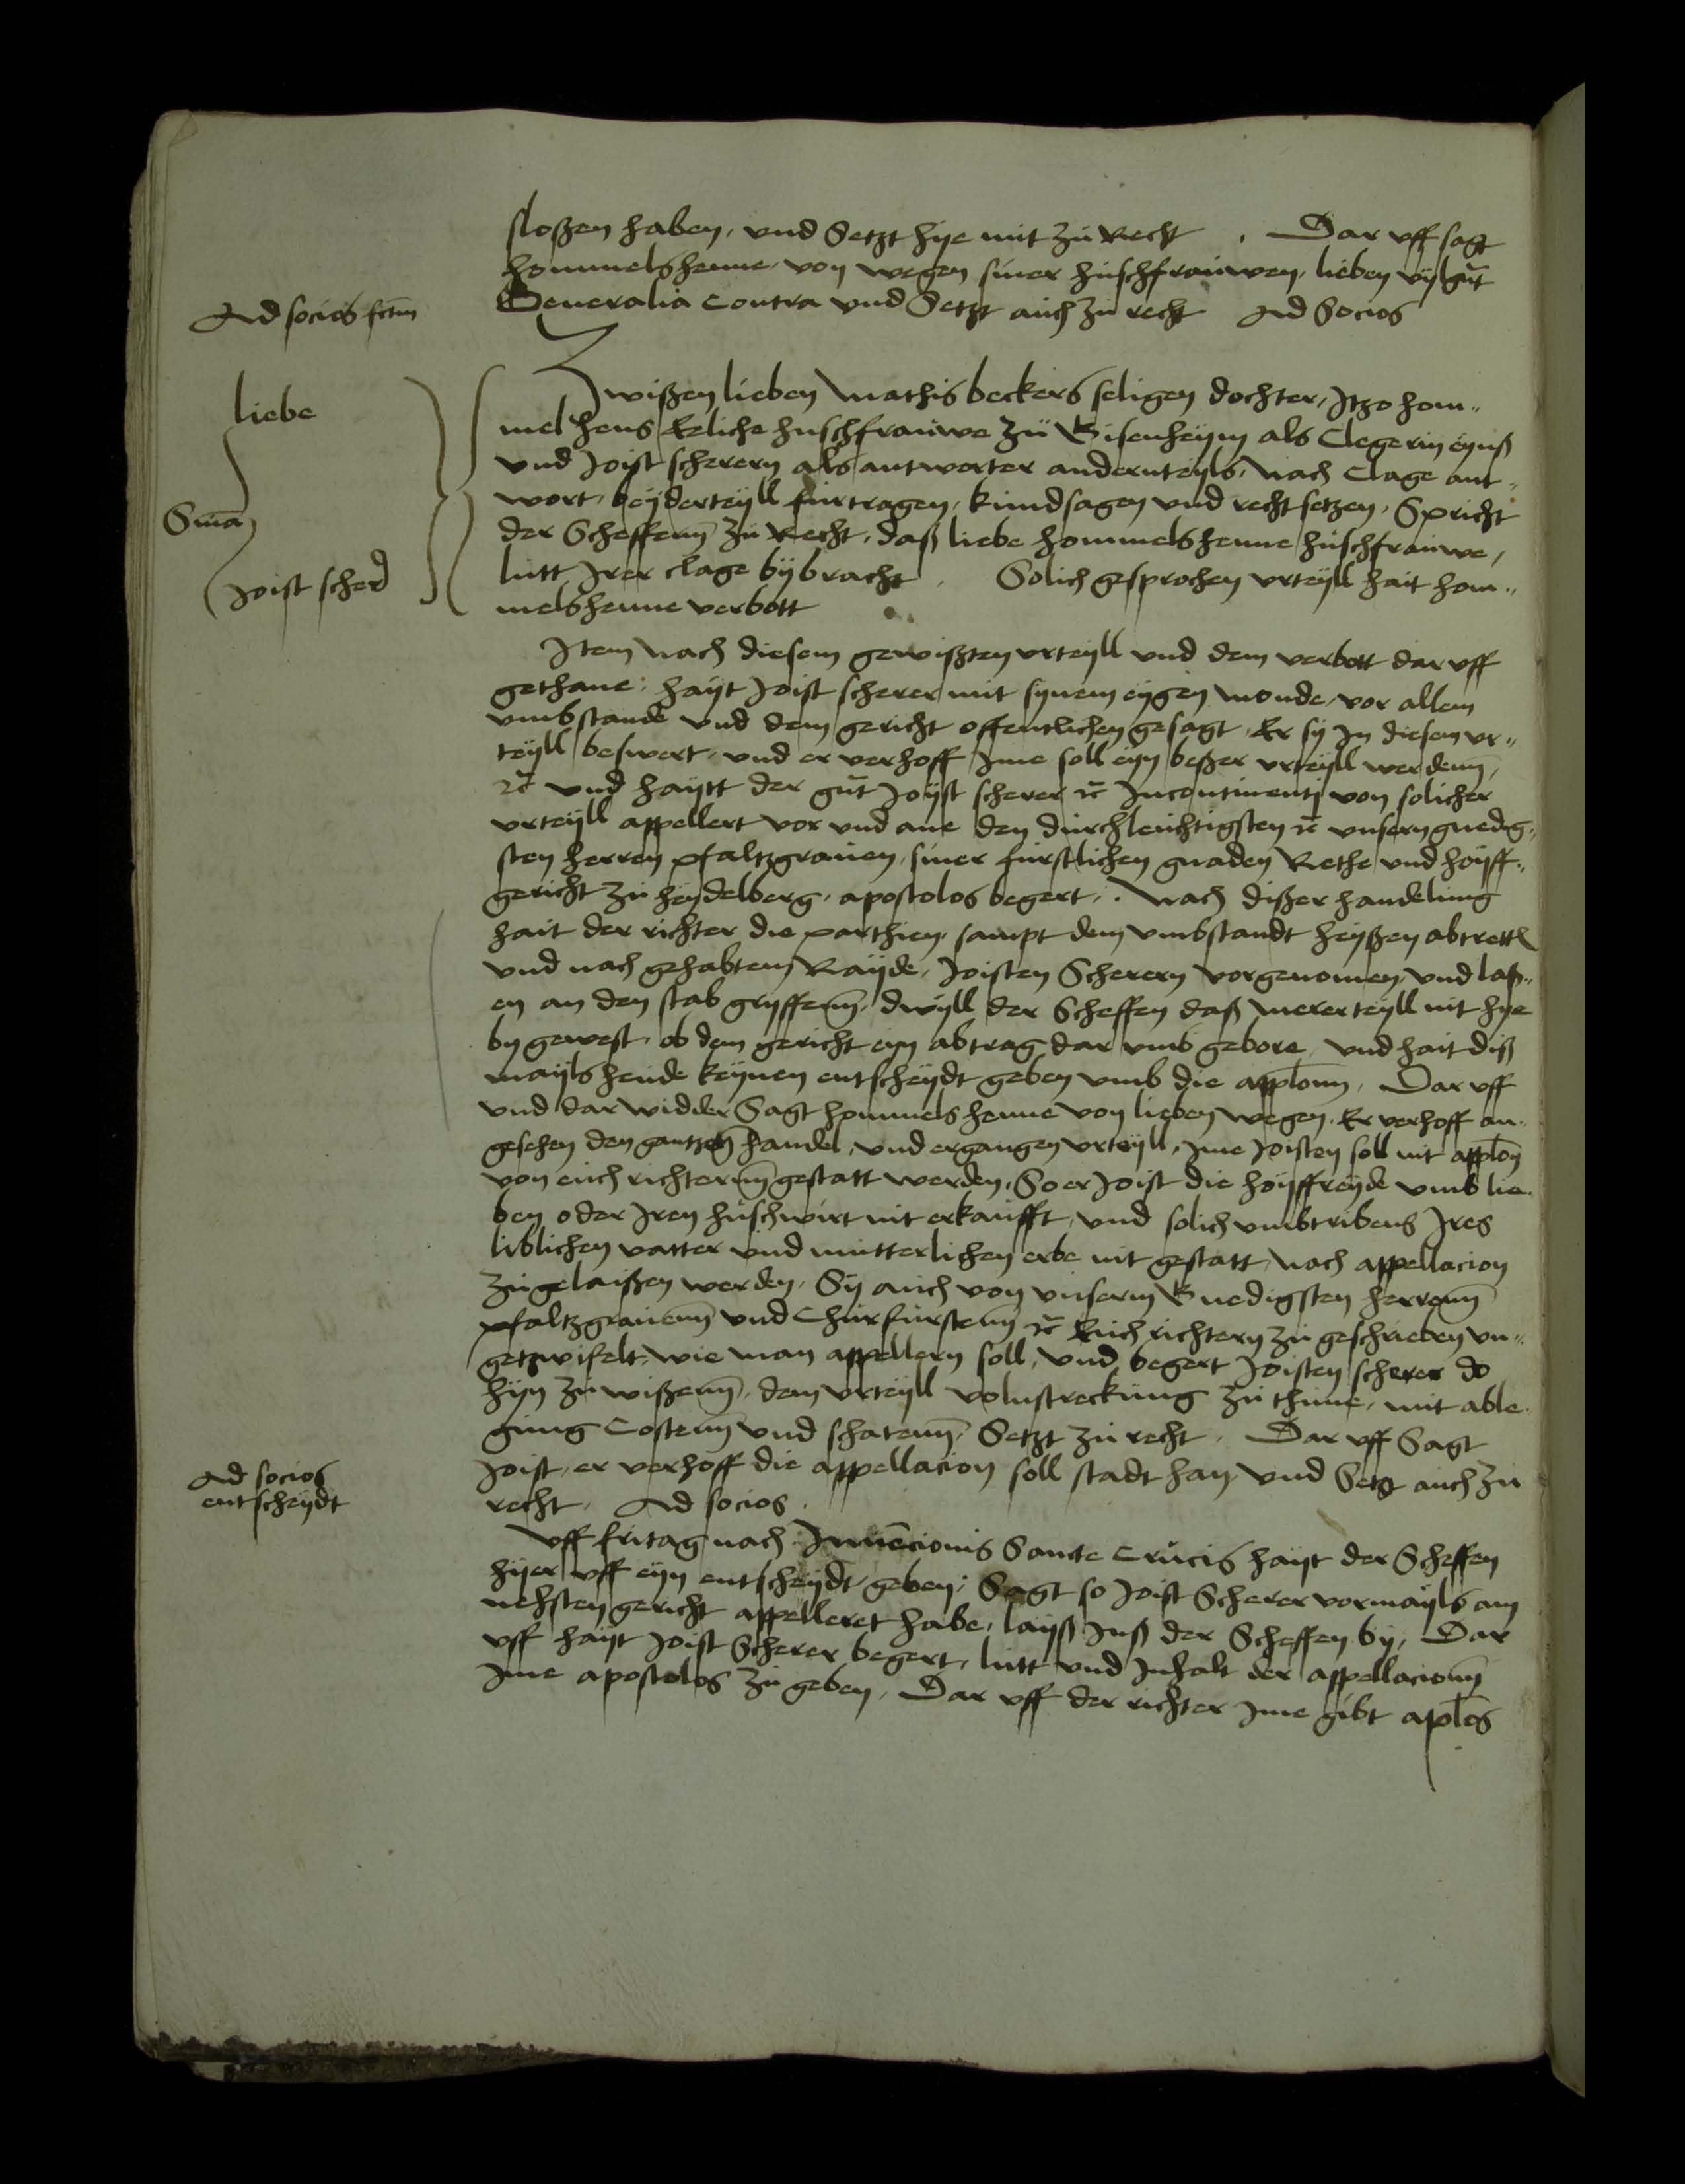 sloßen haben, und Setzt hye mit zu Recht. Dar uff sagt
hommels henne, von wegen siner huschfrauwen, lieben
Generalia Contra und Setzt auch zu recht Ad Socios
Ad socios fctm
Zwißen lieben Mathis beckers seligen dochter, Itzo hom„
mel hens Eeliche huschfrauwe zu Bisenheym als Clegerin eynß
und Joist scherern als antworter andernteyls, Nach Clage ant„
wort, beyderteyll furtragen, kundsagen und recht setzen, Spricht
der Scheffenn zu Recht, daß liebe hommels henne huschfrauwe,
lutt Jrer clage bybracht. Solich gesprochen urteyll hait hom„
mels henne verbott
liebe
Snia
Joist scherer
Item Nach diesem gewißten urteyll und dem verbott dar uff
gethane, hayt Joist scherer mit synem eygen monde, vor allem
umbstande und dem gericht offentlichen gesagt, Er sy Jn diesem ur„
teyll beswert, und er verhoff Jme soll eyn beßer urteyll werdenn,
ꝛc und haytt der gnt Joyst scherer ꝛc Jncontinentj von solicher
urteyll appellert vor und ane den durchleuchtigsten ꝛc unsern gnedig„
sten herren pfaltzgrauen, siner furstlichen gnaden Rethe und hoyff„
gericht zu heydelberg, apostolos begert, Nach dißer handelung
hait der richter die parthien, sampt dem umbstandt heyßen abtretten
und nach gehabtem Rayde, Joisten Scherern vorgenomen, und laß„
en an den stab gryffenn, dwyll der Scheffen daß mererteyll nit hye
by gewest, ob dem gericht eyn abtrag dar umb gebore, und hait diß
mayls heude keynen entscheydt geben umb die applonn, Dar uff
und dar widder Sagt hommels henne von lieben wegen, Er verhoff an„
gesehen den gantzen handel, und ergangen urteyll, Jme Joisten soll nit applon
von euch richternn gestatt werden, So er Joist die hoyffreyde umb lie„
ben oder Jren huschwirt nit erkaufft, und solich umbtribens Jres
liblichen vatter und mutterlichen erbe nit gestatt, Nach appellacion
zugelaißen werden, Sy auch von unserm Gnedigsten herrenn
pfaltzgrauenn und Churfurstenn ꝛc Euch richtern zu geschrieben un„
getzwifelt, wie man appellern soll, und begert Joisten scherer do
hyn zu wißenn, dem urteyll volnstreckung zu thune, mit able„
gung Costenn und schatenn, Setzt zu recht, Dar uff Sagt
Joist, er verhoff die appellacion soll stadt han, und Setzt auch zu
recht, Ad socios.
Ad socios
entscheydt
Uff fritag nach Jnuencionis Sancte Crucis hayt der Scheffen
hyer uff eyn entscheydt geben, Sagt so Joist Scherer vormayls am
nehsten gericht appelleret habe, layß Jnß der Scheffen by, Dar
uff hayt Joist Scherer begert, lutt und Jnhalt der appellacionn
Jme apostolos zu geben, Dar uff der richter Jme gibt aplos